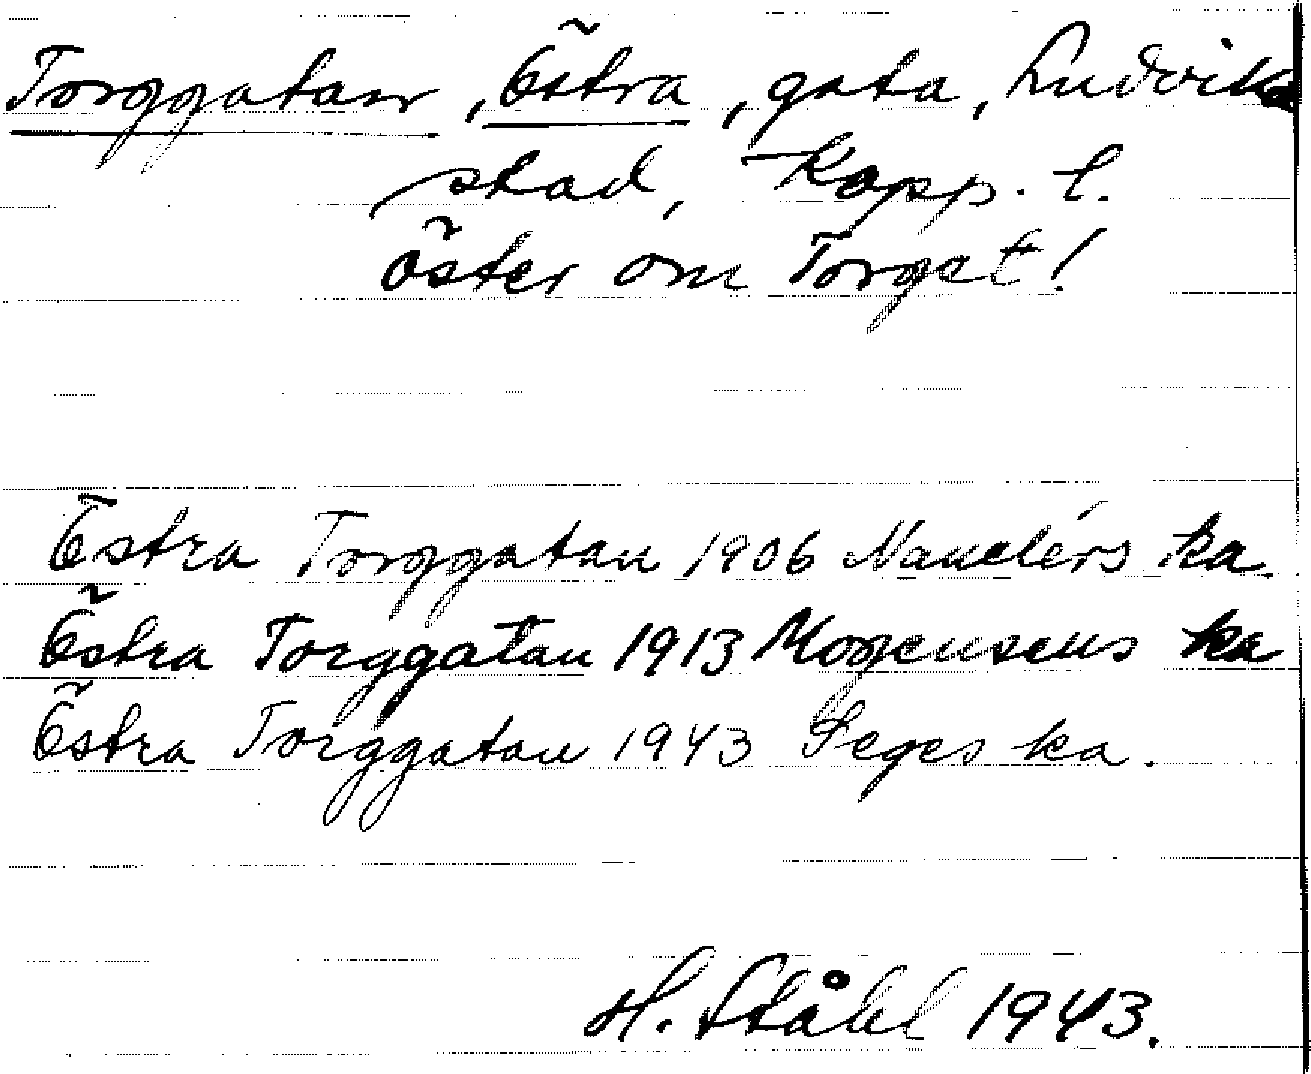 Torggatan, Östra, gata, Ludvika
stad, Kopp. l.
Öster om Torget!
Östra Torggatan 1906 Nauclérs ka.
Östra Torggatan 1913 Mogensens ka
Östra Torggatan 1943 Seges ka.
H. Ståhl 1943.